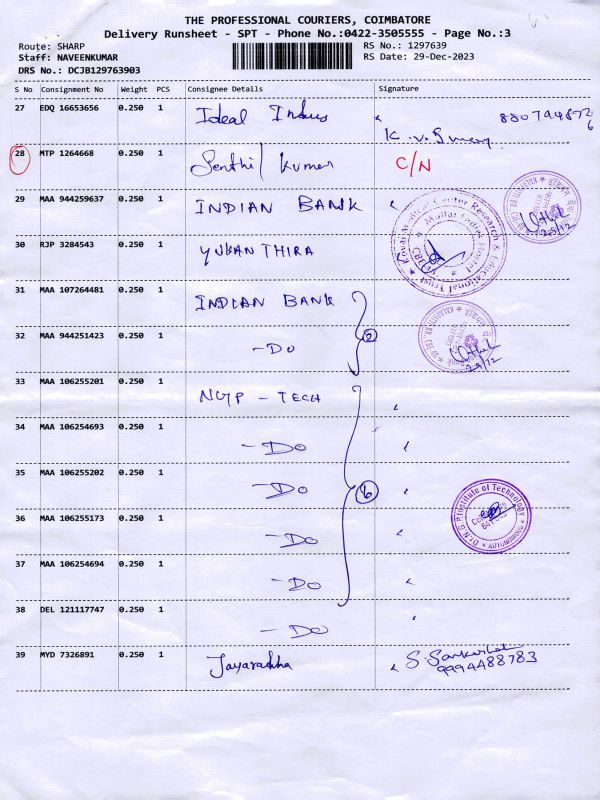 THE PROFESSIONAL COURIERS, COIMBATORE
Delivery Runsheet - SPT - Phone No.:0422-3505555 - Page No.:3
Route: SHARP RS No.: 1297639
Staff: NAVEENKUMAR RS Date: 29-Dec-2023
DRS No.: DCJB129763903
S No Consignment No Weight PCS Consignee Details Signature
27 EDQ 16653656 0.250 1 Ideal Indus
28 MTP 1264668 0.250 1 Senthil Kumar C/N
29 MAA 944259637 0.250 1 INDIAN BANK
30 RJP 3284543 0.250 1 YUKAN THIRA
31 MAA 107264481 0.250 1 INDIAN BANK
32 MAA 944251423 0.250 1 -DO 2
33 MAA 106255201 0.250 1 NGP - TECH
34 MAA 106254693 0.250 1 -DO
35 MAA 106255202 0.250 1 -DO 6
36 MAA 106255173 0.250 1 -DO
37 MAA 106254694 0.250 1 -DO
38 DEL 121117747 0.250 1 -DO
39 MYD 7326891 0.250 1 9994488783